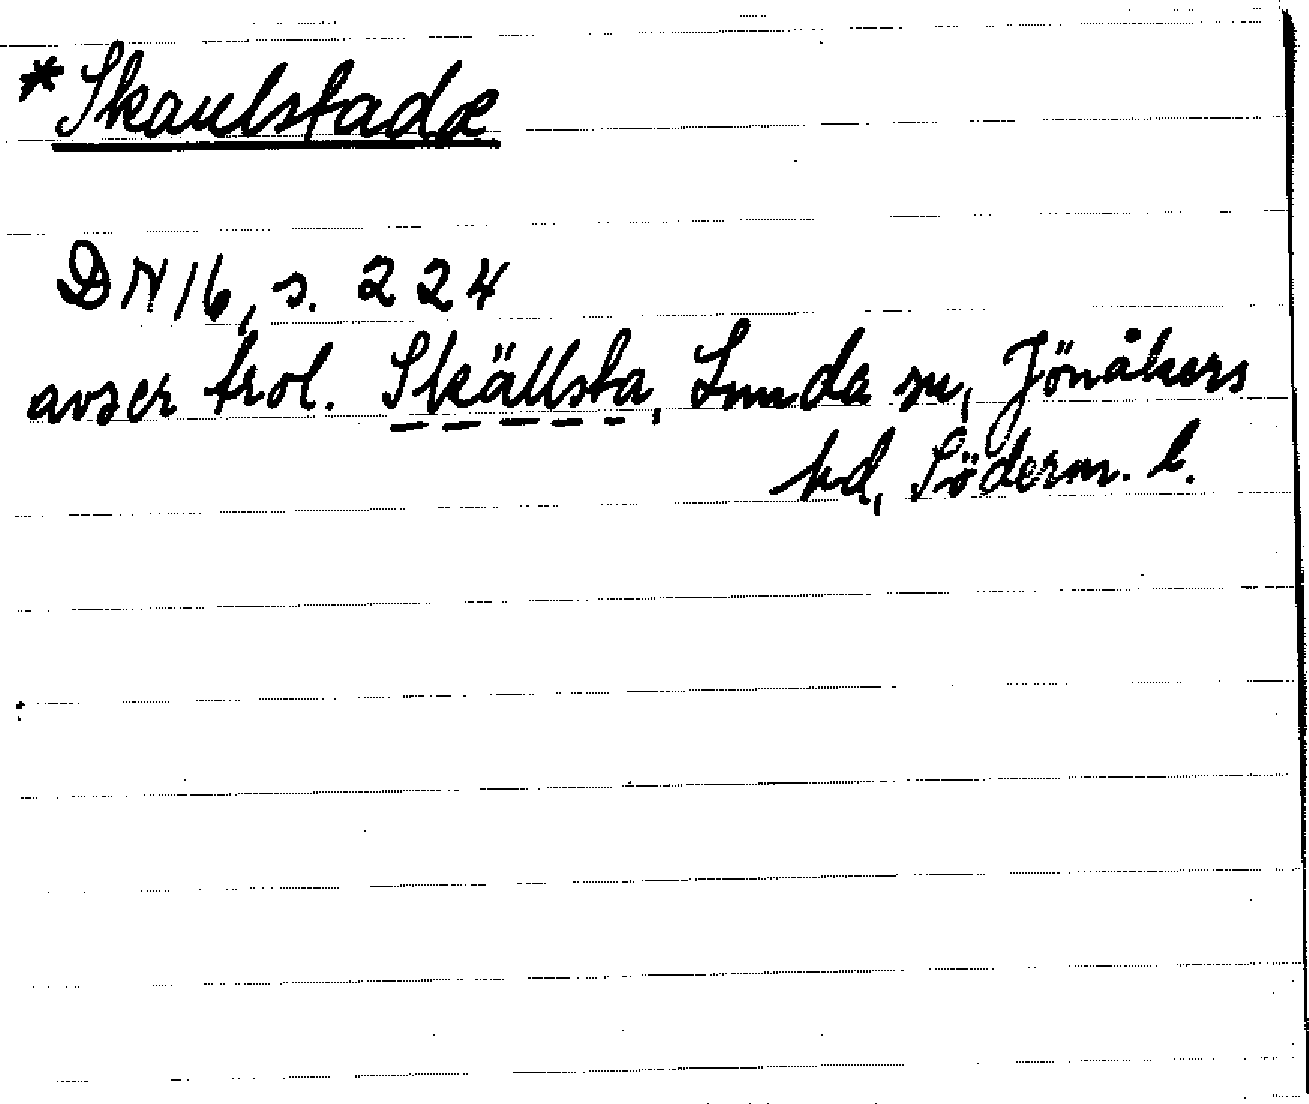 *Skaulstadæ
DN 16, s. 224
avser trol. Skällsta, Lunda sn, Jönåkers
hd, Söderm. l.